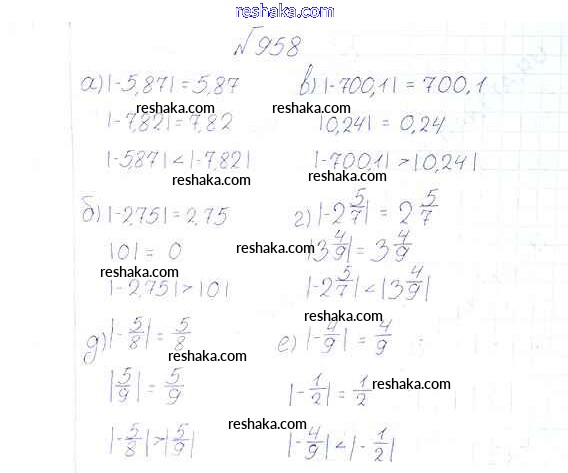 reshaka.com
№958
а) |-5,87| = 5,87
|-7,82| = 7,82
reshaka.com
|-5,87| < |-7,82|
reshaka.com
в) |-700,1| = 700,1
|0,24| = 0,24
reshaka.com
|-700,1| > |0,24|
reshaka.com
б) |-2,75| = 2,75
|0| = 0
reshaka.com
|-2,75| > |0|
г) |-2 5/7| = 2 5/7
reshaka.com
|3 4/9| = 3 4/9
|-2 5/7| < |3 4/9|
reshaka.com
д) |-5/8| = 5/8
reshaka.com
|5/9| = 5/9
|-5/8| > |5/9|
reshaka.com
е) |-4/9| = 4/9
|-1/2| = 1/2
reshaka.com
|-4/9| < |-1/2|
reshaka.com